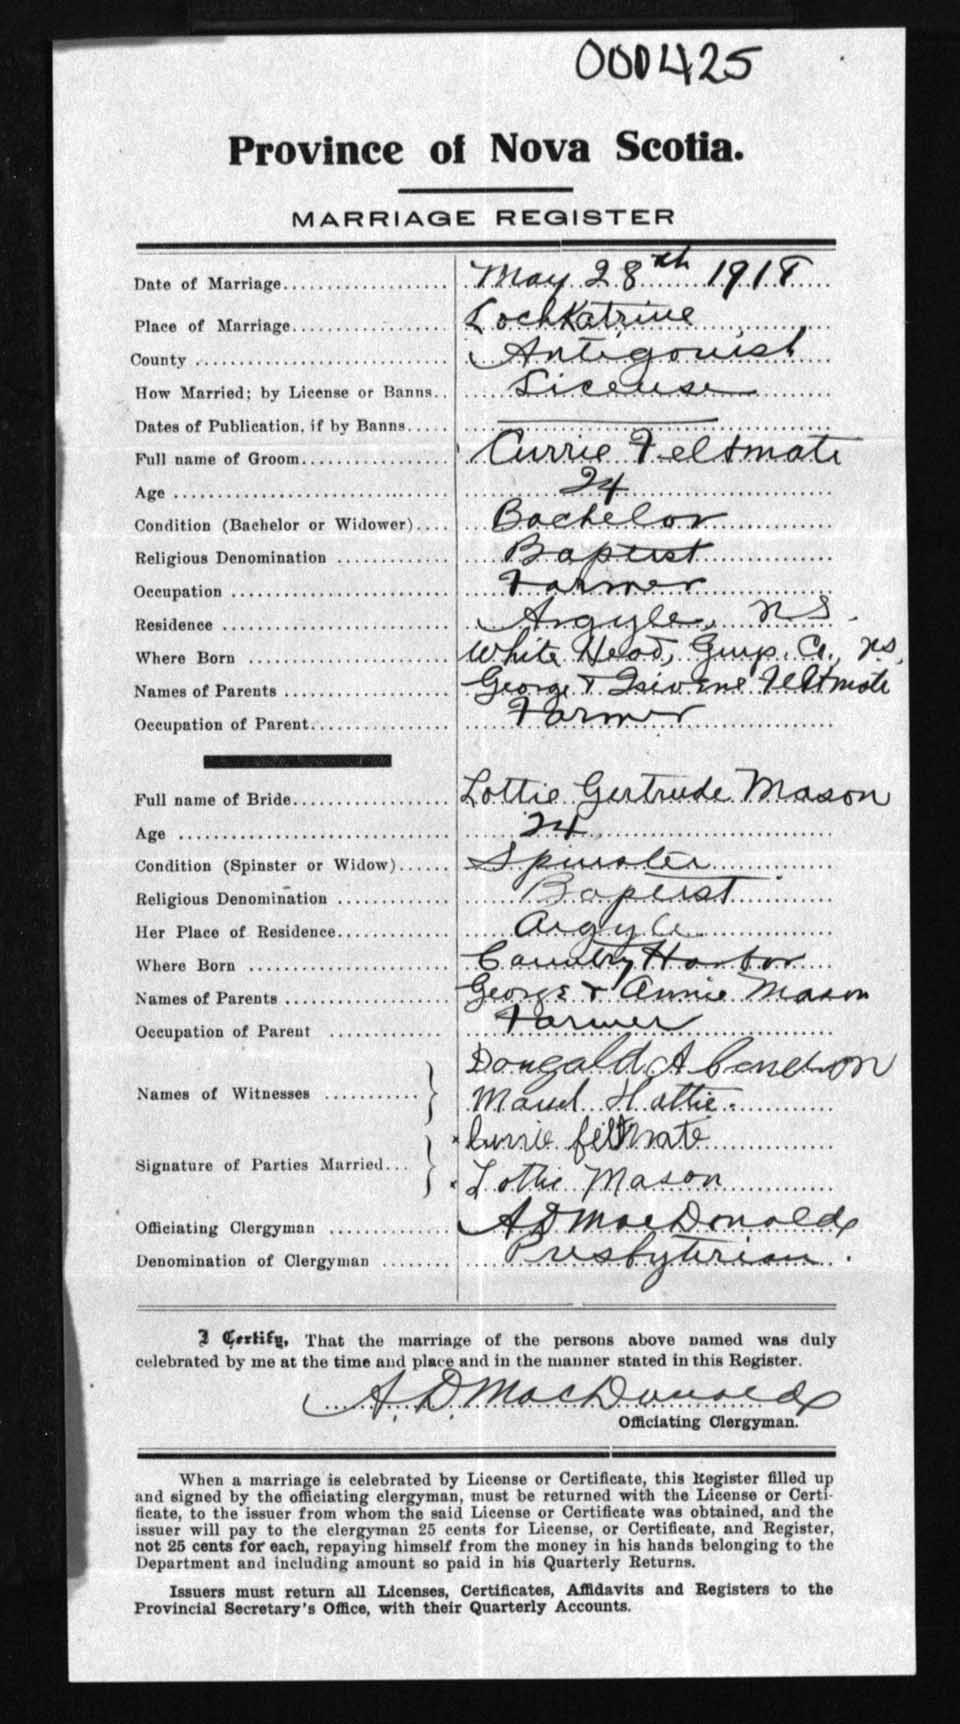 000425
Province of Nova Scotia.
MARRIAGE REGISTER
Date of Marriage.................... May 28th 1918
Place of Marriage................... Loch Katrine
County .............................. Antigonish
How Married; by License or Banns.. License
Dates of Publication, if by Banns.....
Full name of Groom.................. Currie Feltmate
Age ................................. 24
Condition (Bachelor or Widower).... Bachelor
Religious Denomination ............. Baptist
Occupation .......................... Farmer
Residence ........................... Argyle, NS.
Where Born ........................ White Head, Guys. Co., NS.
Names of Parents .................... George & Feltmate
Occupation of Parent................. Farmer
Full name of Bride................... Lottie Gertrude Mason
Age ................................. 24
Condition (Spinster or Widow)...... Spinster
Religious Denomination ............. Baptist
Her Place of Residence............. Argyle
Where Born ........................ Country Harbor
Names of Parents .................... George & Annie Mason
Occupation of Parent .............. Farmer
Dougald A Cameron
Names of Witnesses ...........
Maud Hattie.
Currie feltmate
Signature of Parties Married...
Lottie Mason
Officiating Clergyman .............. A D MacDonald
Denomination of Clergyman ........ Presbyterian.
I Certify, That the marriage of the persons above named was duly
celebrated by me at the time and place and in the manner stated in this Register.
A. D. MacDonald
Officiating Clergyman.
When a marriage is celebrated by License or Certificate, this Register filled up
and signed by the officiating clergyman, must be returned with the License or Certi-
ficate, to the issuer from whom the said License or Certificate was obtained, and the
issuer will pay to the clergyman 25 cents for License, or Certificate, and Register,
not 25 cents for each, repaying himself from the money in his hands belonging to the
Department and including amount so paid in his Quarterly Returns.
Issuers must return all Licenses, Certificates, Affidavits and Registers to the
Provincial Secretary's Office, with their Quarterly Accounts.